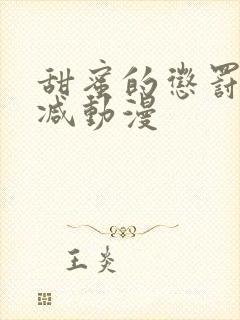 甜蜜的懲罰
减動漫
王炎